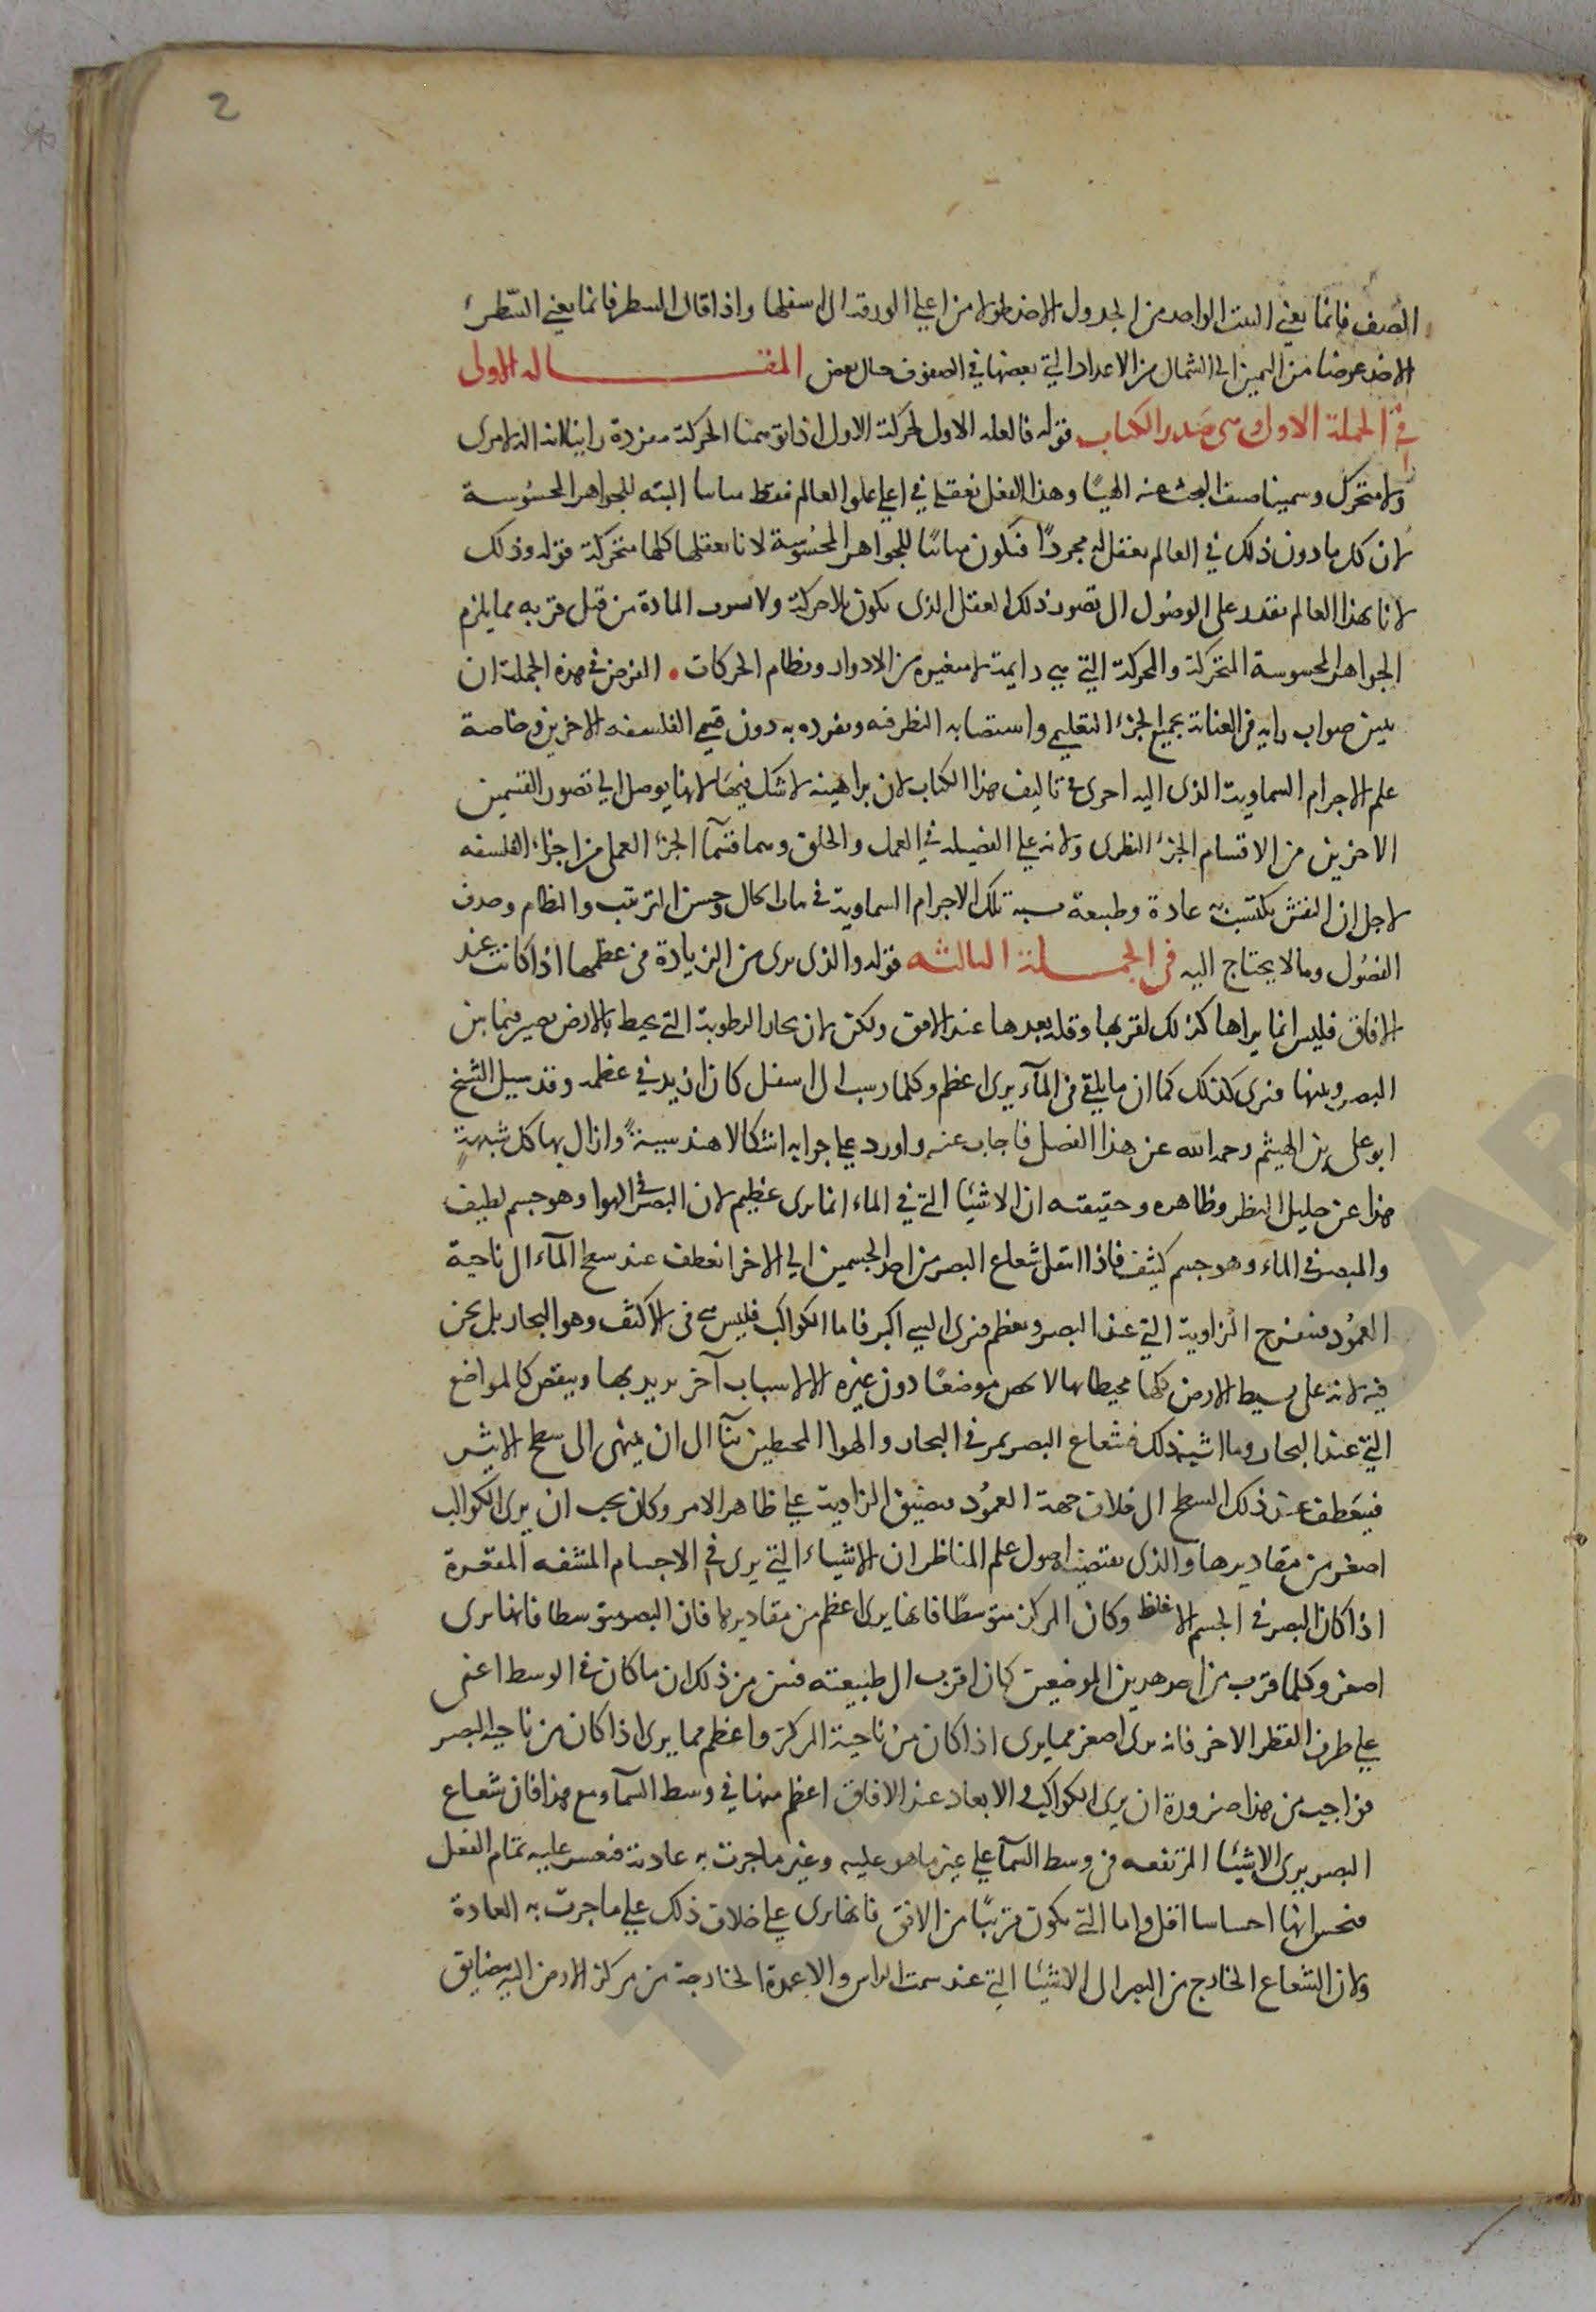 2
الصف فانما يعني البيت الواحد من الجدول الاخذ طولا من اعلي الورقة الى اسفلها واذا قال السطر فانما يعني السطر
الاخذ عرضا من اليمين الي الشمال من الاعداد التي بعضها في الصفوف حيال بعض المقــــــالة الاولى
في الجملة الاولى من صدر الكتاب قوله فالعلة الاولى لحركة الاول اذا توهمنا الحركة مفردة راينا انه اله لا مرى
ولا متحرك وسمينا صنف البحث عنه الهيًا وهذا الفعل نعقله في اعلي علو العالم فقط مباينا البته للجواهر المحسوسة
لان كل ما دون ذلك في العالم يعقل له مجردًا فيكون مباينًا للجواهر المحسوسة لانا نعقلها كلها متحركة قوله وذلك
لانا بهذا العالم نقدر على الوصول الى تصور ذلك الفعل الذى يكون بلا حركة ولا المادة من قبل قربه مما يلزم
الجواهر المحسوسة المتحركة والمحركة التي هي دايمة لا متغيرة من الادوار ونظام الحركات . الغرض في هذه الجملة ان
يبين صواب رايه في العناية بجميع الجزء التعليمي واستصابه النظر فيه وتفرده به دون قسمي الفلسفه الاخرين وخاصة
علم الاجرام السماوية الذى اليه اجرى في تاليف هذا الكتاب لان براهينه لا شك فيها لانها يوصل الي تصور القسمين
الاخرين من الاقسام الجزء النظرى ولانه علي الفضيلة في العمل والخلق وهما قسما الجزء العملى من اجزاء الفلسفه
لاجل ان النفس يكتسب عادة وطبيعة تلك الاجرام السماوية في باب الكمال وحسن الترتيب والنظام وحذف
الفضول وما لا يحتاج اليه في الجمــــلة الثالثه قوله والذى يرى من الزيادة فى عظمها اذا كانت عند
الافاق فليس انما يراها كذلك لقربها وقله بعدها عند الافق ولكن لان بخار الرطوبة التي يحيط بالارض يصير فيما بين
البصر وبينها فترى كذلك كما ان ما يلقى في المآء يرى اعظم وكلما رسب الى اسفل كان ازيد في عظمه وقد سيل الشيخ
ابو علي بن الهيثم رحمه الله عن هذا الفصل فاجاب عنه واورد علي جوابه اشكالا هندسيةً وازال بها كل شبهةٍ
هذا عن جليل النظر وظاهره وحقيقته ان الاشيا التي في الماء انما يرى عظيم لان البصر في الهوا وهو جسم لطيف
والمبصر في الماء وهو جسم كثيف فاذا انتقل شعاع البصر من احد الجسمين الي الاخر انعطف عند سطح المآء الى ناحية
العمود فتنفرج الزاوية التي عند البصر ويعظم فنرى الشي اكبر فاما الكواكب فليس هي في الاكثف وهو البخار بل نحن
فيه لانه على بسيط الارض كلها محيط بها لا يخص موضعًا دون غيره الا لاسباب آخر يزيد بها وينقص كالمواضع
التي عند البحار وما اشبه ذلك فشعاع البصر يمر في البخار والهوا المحيطين بنا الى ان ينتهى الى سطح الاثير
فينعطف عند ذلك السطح الى خلاف جهة العمود فيضيق الزاوية علي ظاهر الامر وكان يجب ان يرى الكواكب
اصغر من مقاديرها والذى يقتضيه اصول علم المناظر ان الاشياء التي يرى في الاجسام المشفه المقعرة
اذا كان البصر في الجسم الاغلظ وكان المركز متوسطًا فانها يرى اعظم من مقاديرها فان البصر متوسطا فانها يرى
اصغر وكلما قرب من احد هذين الموضعين كان اقرب الى طبيعته فبين من ذلك ان ما كان في الوسط اعنى
علي طرف القطر الاخر فانه يرى اصغر مما يرى اذا كان من ناحية المركز واعظم مما يرى اذا كان من ناحية البصر
فواجب من هذا ضرورة ان يرى الكواكب والابعاد عند الافاق اعظم منها في وسط السمآء ومع هذا فان شعاع
البصر يرى الاشيا المرتفعه في وسط السمآ علي غير ما هو عليه وغير ما جرت به عادته فيعسر عليه تمام الفعل
فيحس انها احساسا اقل واما التي يكون قريبًا من الافق فانها يرى علي خلاف ذلك علي ما جرت به العادة
ولان الشعاع الخارج من البصر الى الاشيا التي عند سمت الراس والاعمدة الخارجة من مركز الارض اليه يضايق